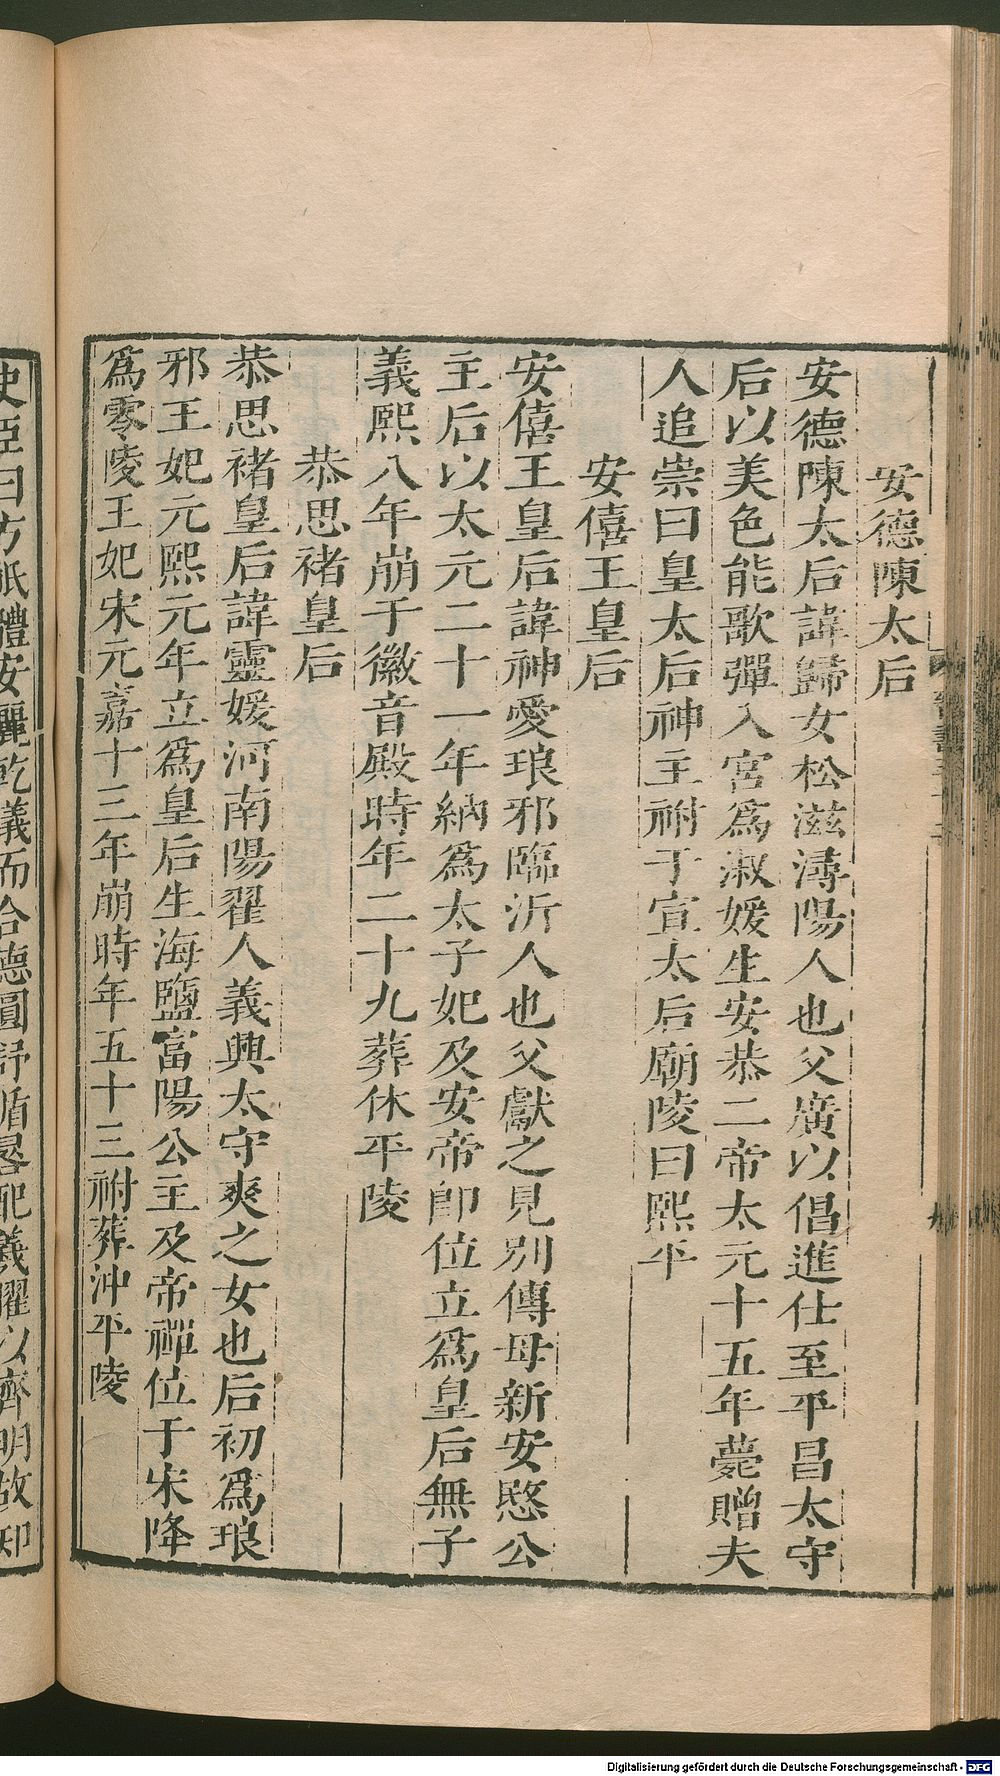 安德陳太后
安德陳太后諱歸女松滋潯陽人也父廣以倡進仕至平昌太守
后以美色能歌彈入宮為淑媛生安恭二帝太元十五年薨贈夫
人追崇曰皇太后神主祔于宣太后廟陵曰熙平
安僖王皇后
安僖王皇后諱神愛琅邪臨沂人也父獻之見別傳母新安愍公
主后以太元二十一年納為太子妃及安帝即位立為皇后無子
義熙八年崩于徽音殿時年二十九葬休平陵
恭思褚皇后
恭思褚皇后諱靈媛河南陽翟人義興太守爽之女也后初為琅
邪王妃元熙元年立為皇后生海鹽富陽公主及帝禪位于宋降
為零陵王妃宋元嘉十三年崩時年五十三祔葬沖平陵
史臣曰方祇體安儷乾儀而合德圓舒循晷配羲曜以齊明故知
Digitalisierung gefördert durch die Deutsche Forschungsgemeinschaft - DFG